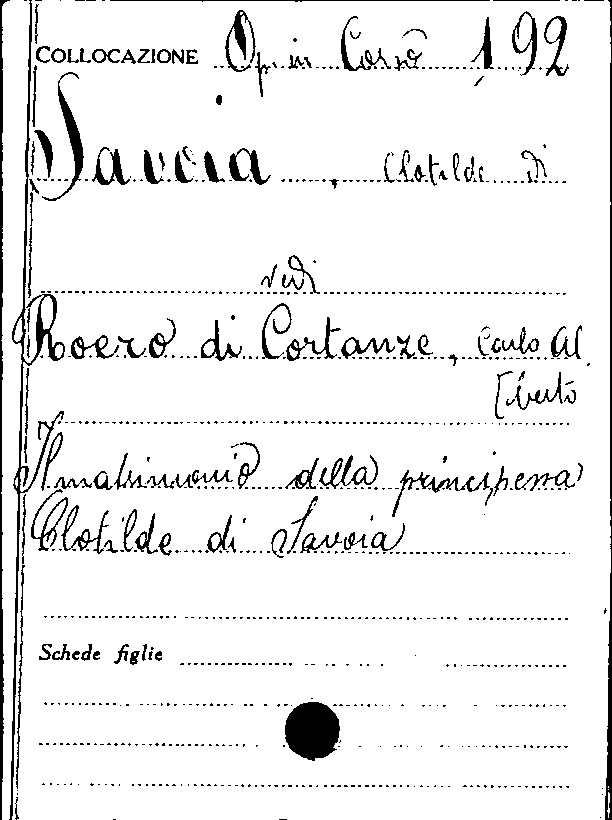 COLLOCAZIONE Op. in Corso 192
Savoia, Clotilde di
vedi
Roero di Cortanze, Carlo Al
[berto
Il matrimonio della principessa
Clotilde di Savoia
Schede figlie